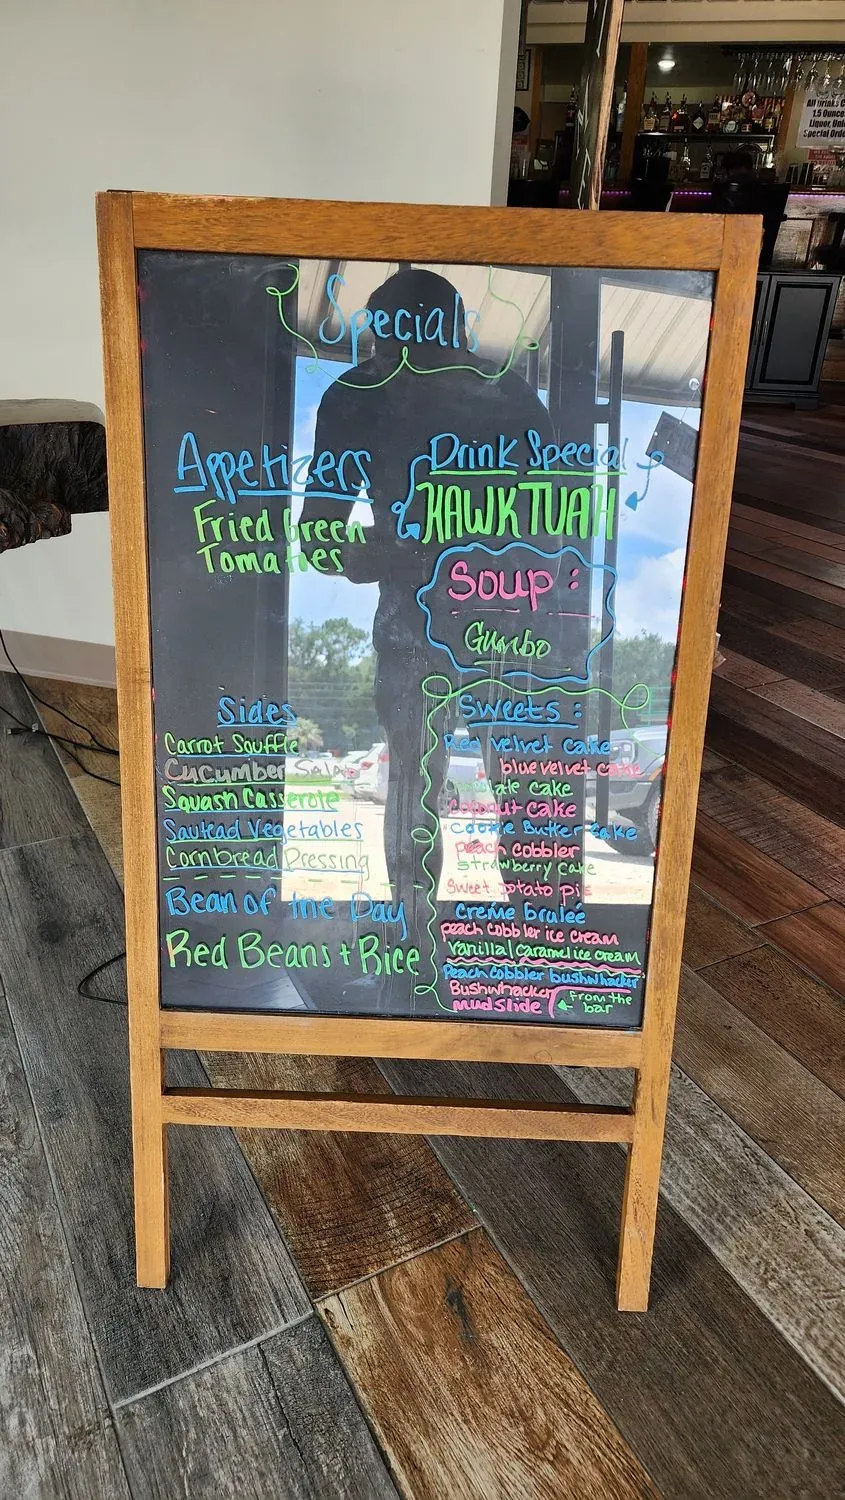 Specials
Appetizers
Fried Green
Tomatoes
Drink Special
HAWK TUAH
Soup :
Gumbo
Sides
Carrot Souffle
Cucumber Salad
Squash Casserole
Sautead Vegetables
Cornbread Dressing
Bean of the Day
Red Beans + Rice
Sweets :
Red velvet cake
blue velvet cake
chocolate cake
Coconut cake
Cookie Butter cake
peach cobbler
strawberry cake
Sweet potato pie
creme brulée
peach cobbler ice cream
vanilla/caramel ice cream
Peach Cobbler bushwhacker
Bushwhacker
mudslide
From the
bar
All Drinks
1.5 Ounce
Liquor,
Special